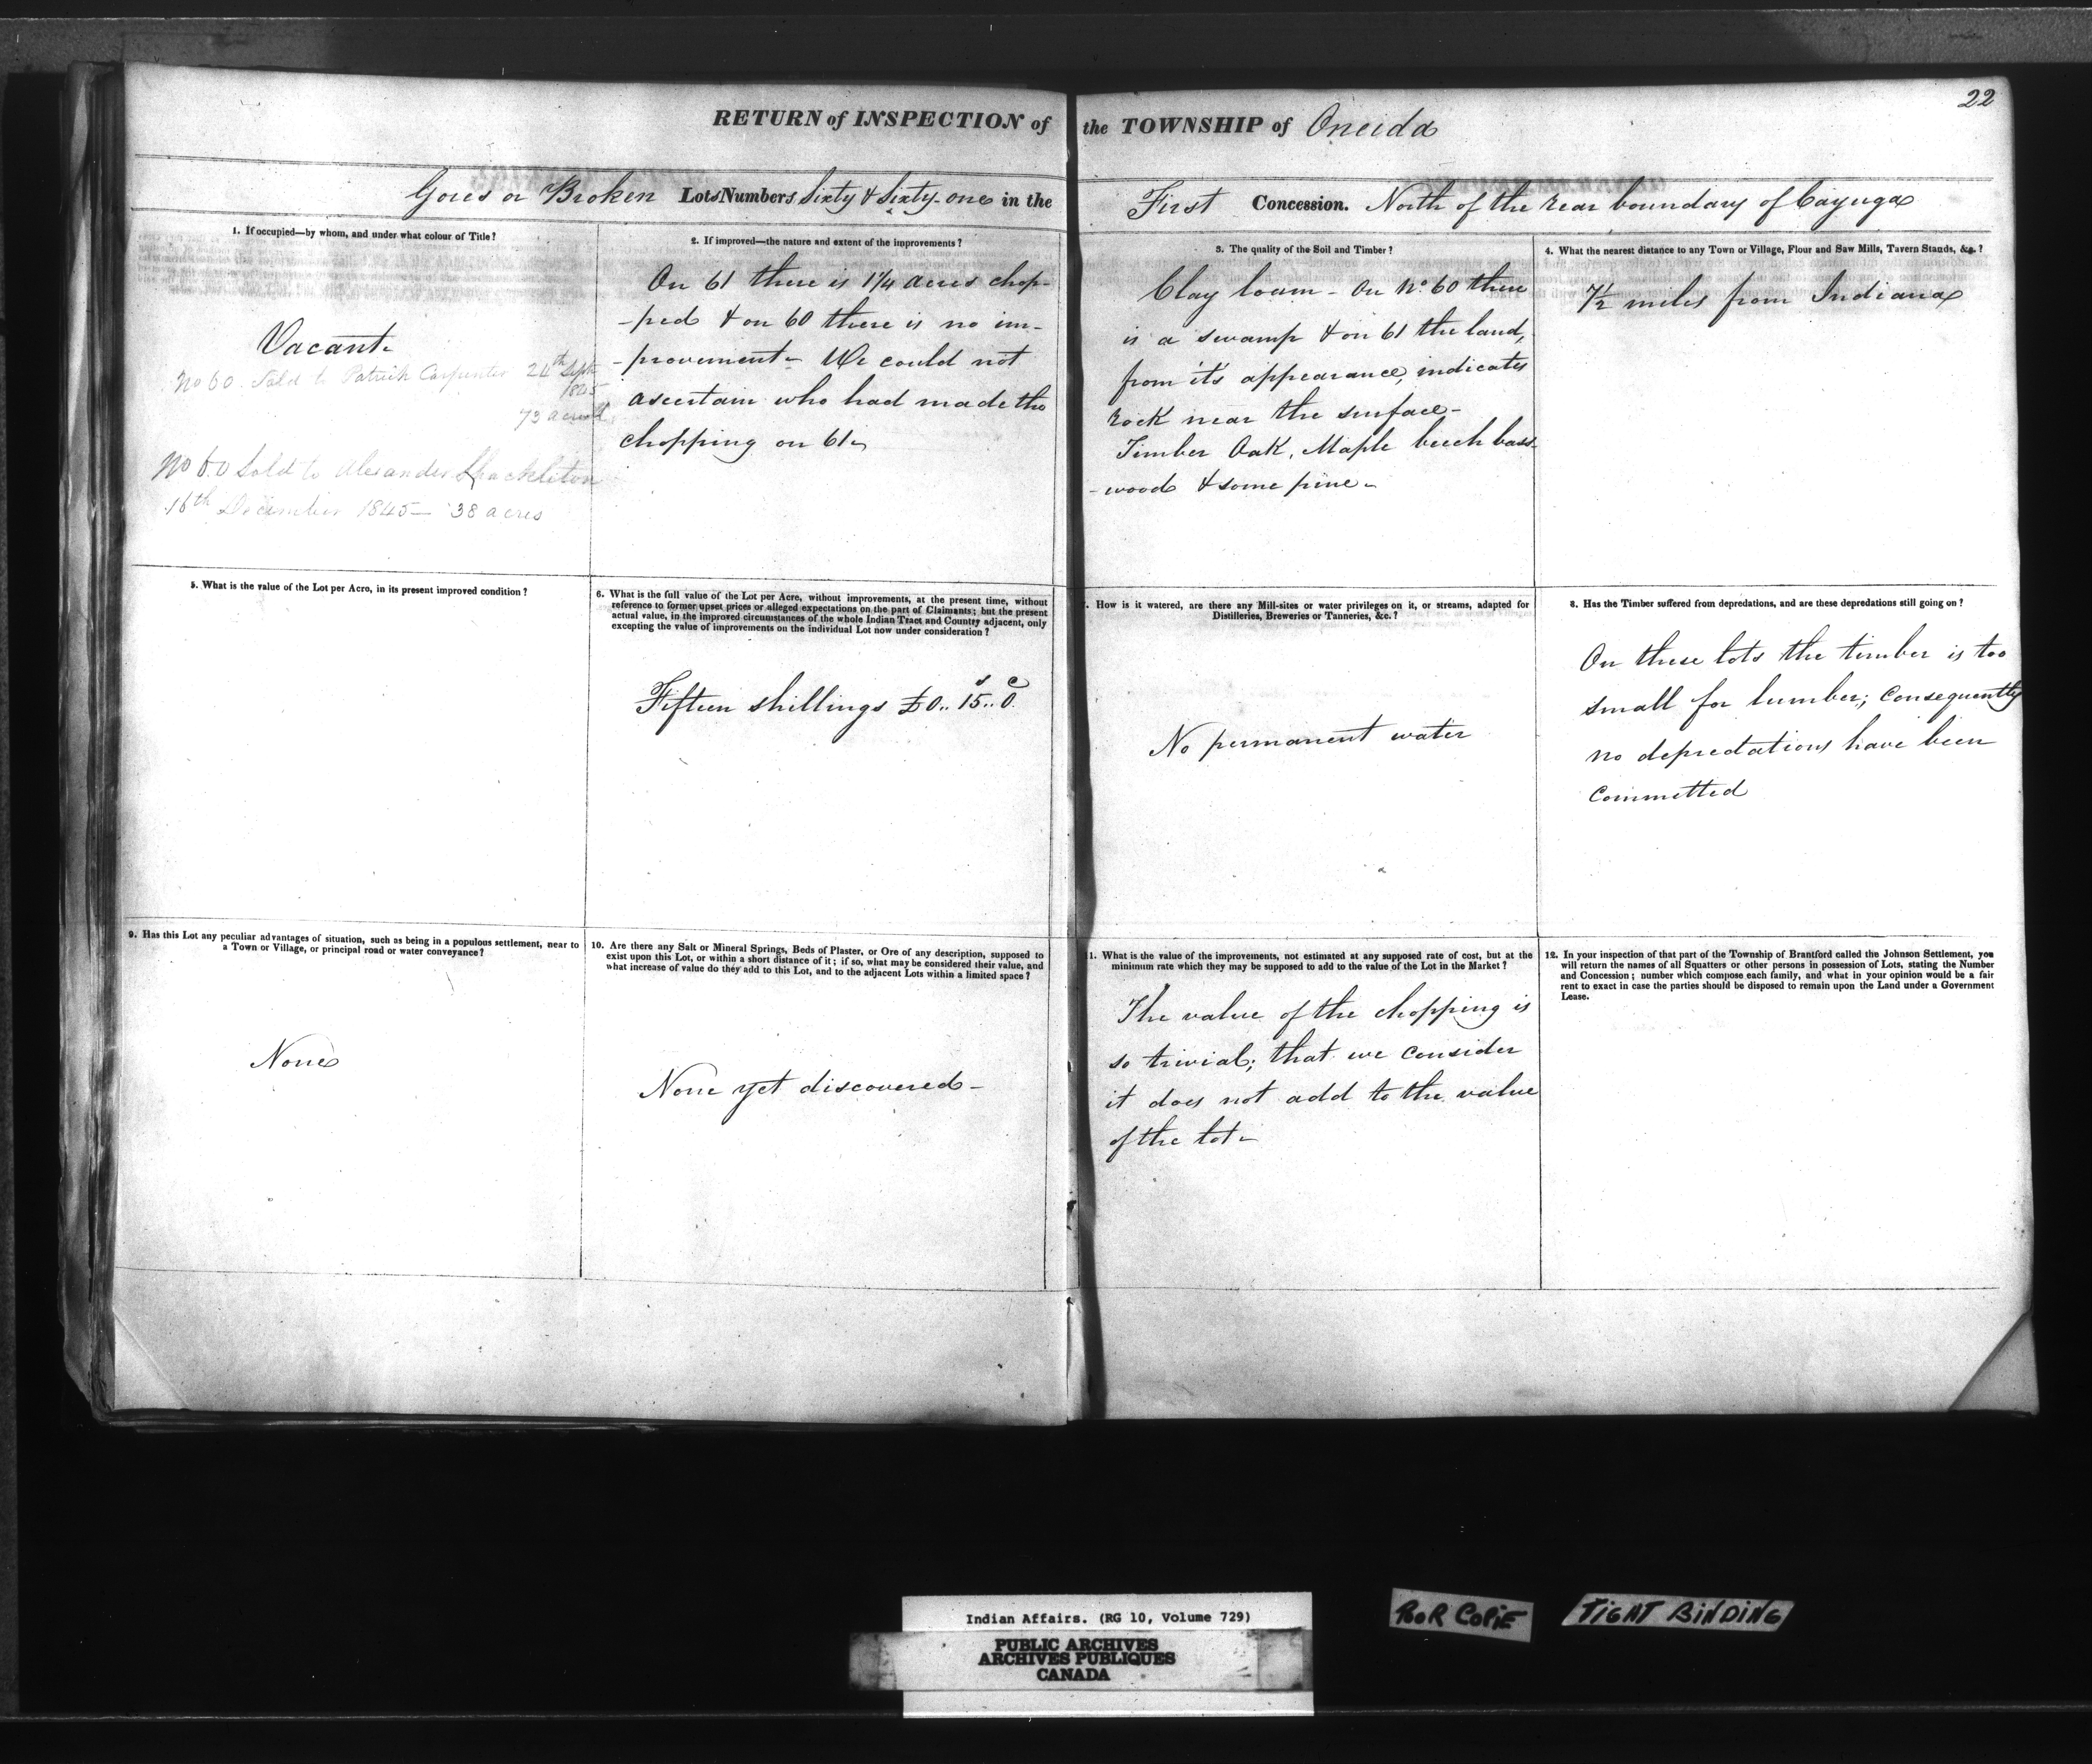 22
RETURN of INSPECTION of the TOWNSHIP of Oneida
Gores or Broken Lots Numbers Sixty & Sixty-one in the First Concession. North of the rear boundary of Cayuga
1. If occupied—by whom, and under what colour of Title?
Vacant
No 60. Sold to Patrick Carpenter 24th Septr
1845
73 acres
No 60 Sold to Alexander Shackleton
16th December 1845 — 38 acres
2. If improved—the nature and extent of the improvements?
On 61 there is 1¼ acres chop-
-ped & on 60 there is no im-
-provement - We could not
ascertain who had made the
chopping on 61
3. The quality of the Soil and Timber?
Clay loam - On No. 60 there
is a swamp & on 61 the land,
from it's appearance, indicates
rock near the surface -
Timber Oak, Maple beech bass-
-wood & some pine -
4. What the nearest distance to any Town or Village, Flour and Saw Mills, Tavern Stands, &c.?
7½ miles from Indiana
5. What is the value of the Lot per Acre, in its present improved condition?
6. What is the full value of the Lot per Acre, without improvements, at the present time, without
reference to former upset prices or alleged expectations on the part of Claimants; but the present
actual value, in the improved circumstances of the whole Indian Tract and Country adjacent, only
excepting the value of improvements on the individual Lot now under consideration?
Fifteen shillings £0..15..0.
. How is it watered, are there any Mill-sites or water privileges on it, or streams, adapted for
Distilleries, Breweries or Tanneries, &c.?
No permanent water
8. Has the Timber suffered from depredations, and are these depredations still going on?
On these lots the timber is too
small for lumber; consequently
no depredations have been
committed
9. Has this Lot any peculiar advantages of situation, such as being in a populous settlement, near to
a Town or Village, or principal road or water conveyance?
None
10. Are there any Salt or Mineral Springs, Beds of Plaster, or Ore of any description, supposed to
exist upon this Lot, or within a short distance of it; if so, what may be considered their value, and
what increase of value do they add to this Lot, and to the adjacent Lots within a limited space?
None yet discovered -
11. What is the value of the improvements, not estimated at any supposed rate of cost, but at the
minimum rate which they may be supposed to add to the value of the Lot in the Market?
The value of the chopping is
so trivial; that we consider
it does not add to the value
of the lot -
12. In your inspection of that part of the Township of Brantford called the Johnson Settlement, you
will return the names of all Squatters or other persons in possession of Lots, stating the Number
and Concession; number which compose each family, and what in your opinion would be a fair
rent to exact in case the parties should be disposed to remain upon the Land under a Government
Lease.
Indian Affairs. (RG 10, Volume 729)
PUBLIC ARCHIVES
ARCHIVES PUBLIQUES
CANADA
POOR COPIE
TIGHT BINDING